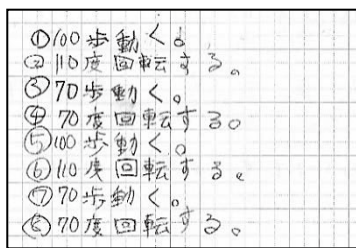 ①100歩動く。
②110度回転する。
③70歩動く。
④70度回転する。
⑤100歩動く。
⑥110度回転する。
⑦70歩動く。
⑧70度回転する。